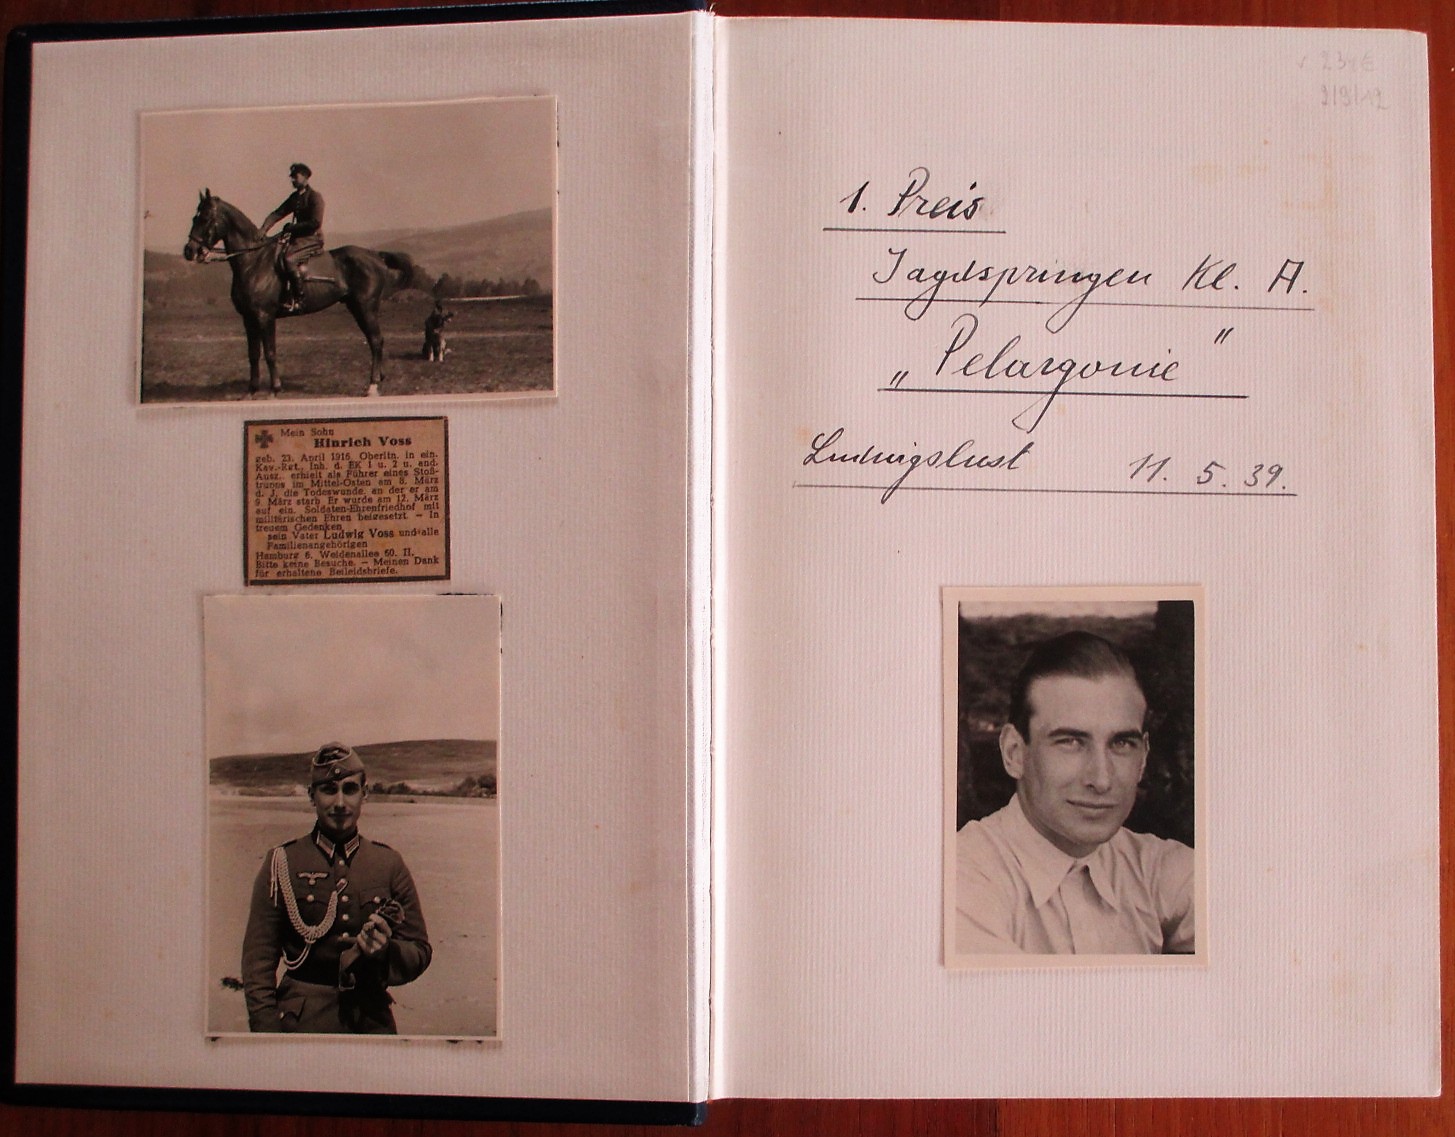 Mein Sohn
Hinrich Voss
geb. 23. April 1916, Oberltn. in ein.
Kav.-Rgt., Inh. d. EK I u. 2 u. and.
Ausz., erhielt als Führer eines Stoß-
trupps im Mittel-Osten am 8. März
d. J. die Todeswunde, an der er am
9. März starb. Er wurde am 12. März
auf ein. Soldaten-Ehrenfriedhof mit
militärischen Ehren beigesetzt. – In
treuem Gedenken
sein Vater Ludwig Voss und alle
Familienangehörigen
Hamburg 6, Weidenallee 60. II.
Bitte keine Besuche. – Meinen Dank
für erhaltene Beileidsbriefe.
1. Preis
Jagdspringen Kl. A.
„Pelargonie"
Ludwigslust 11. 5. 39.